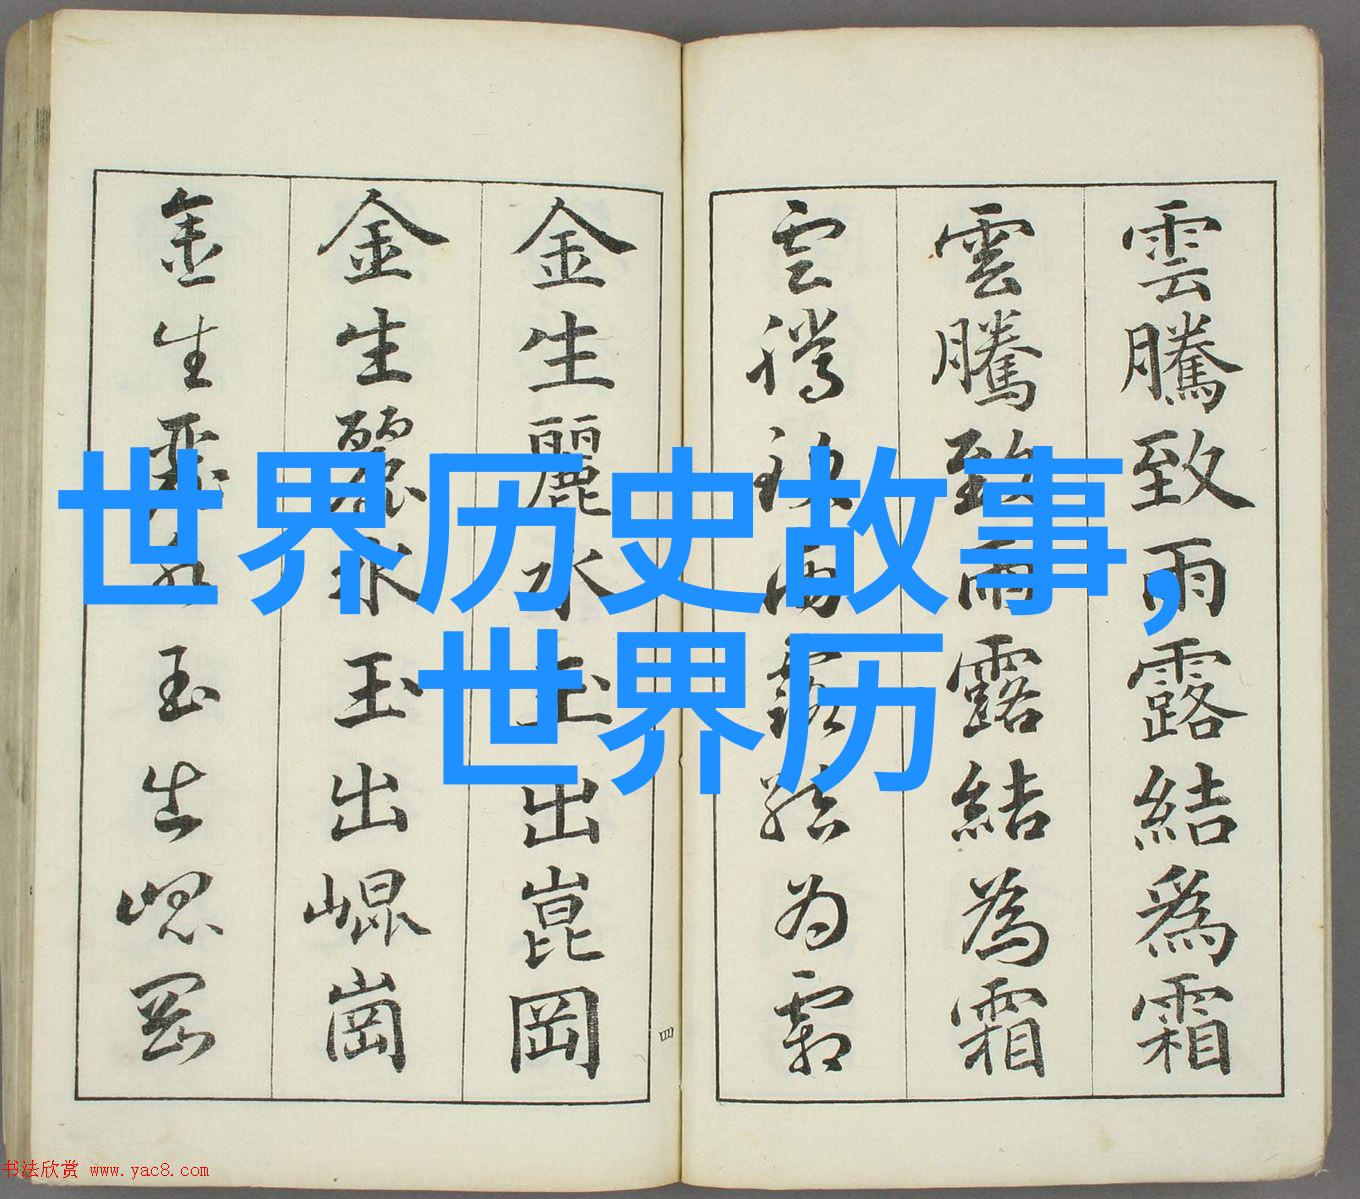 雲騰致雨露結為霜
雲騰致雨露結為霜
雲騰致雨露結為霜
四
金生麗水玉出崑岡
金生麗水玉出崐崗
金生麗水玉出崐岡
世界历史故事,
世界历
书法欣赏 www.yac8.com